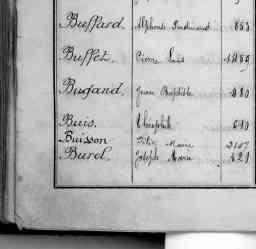 Buffard. Alphonse Ferdinand 853
Buffet. Pierre Louis
Bugand. Jean Baptiste 480
Buis. Théophile 690
Buisson Félix Marie 2107
Buret. Joseph Marie 421